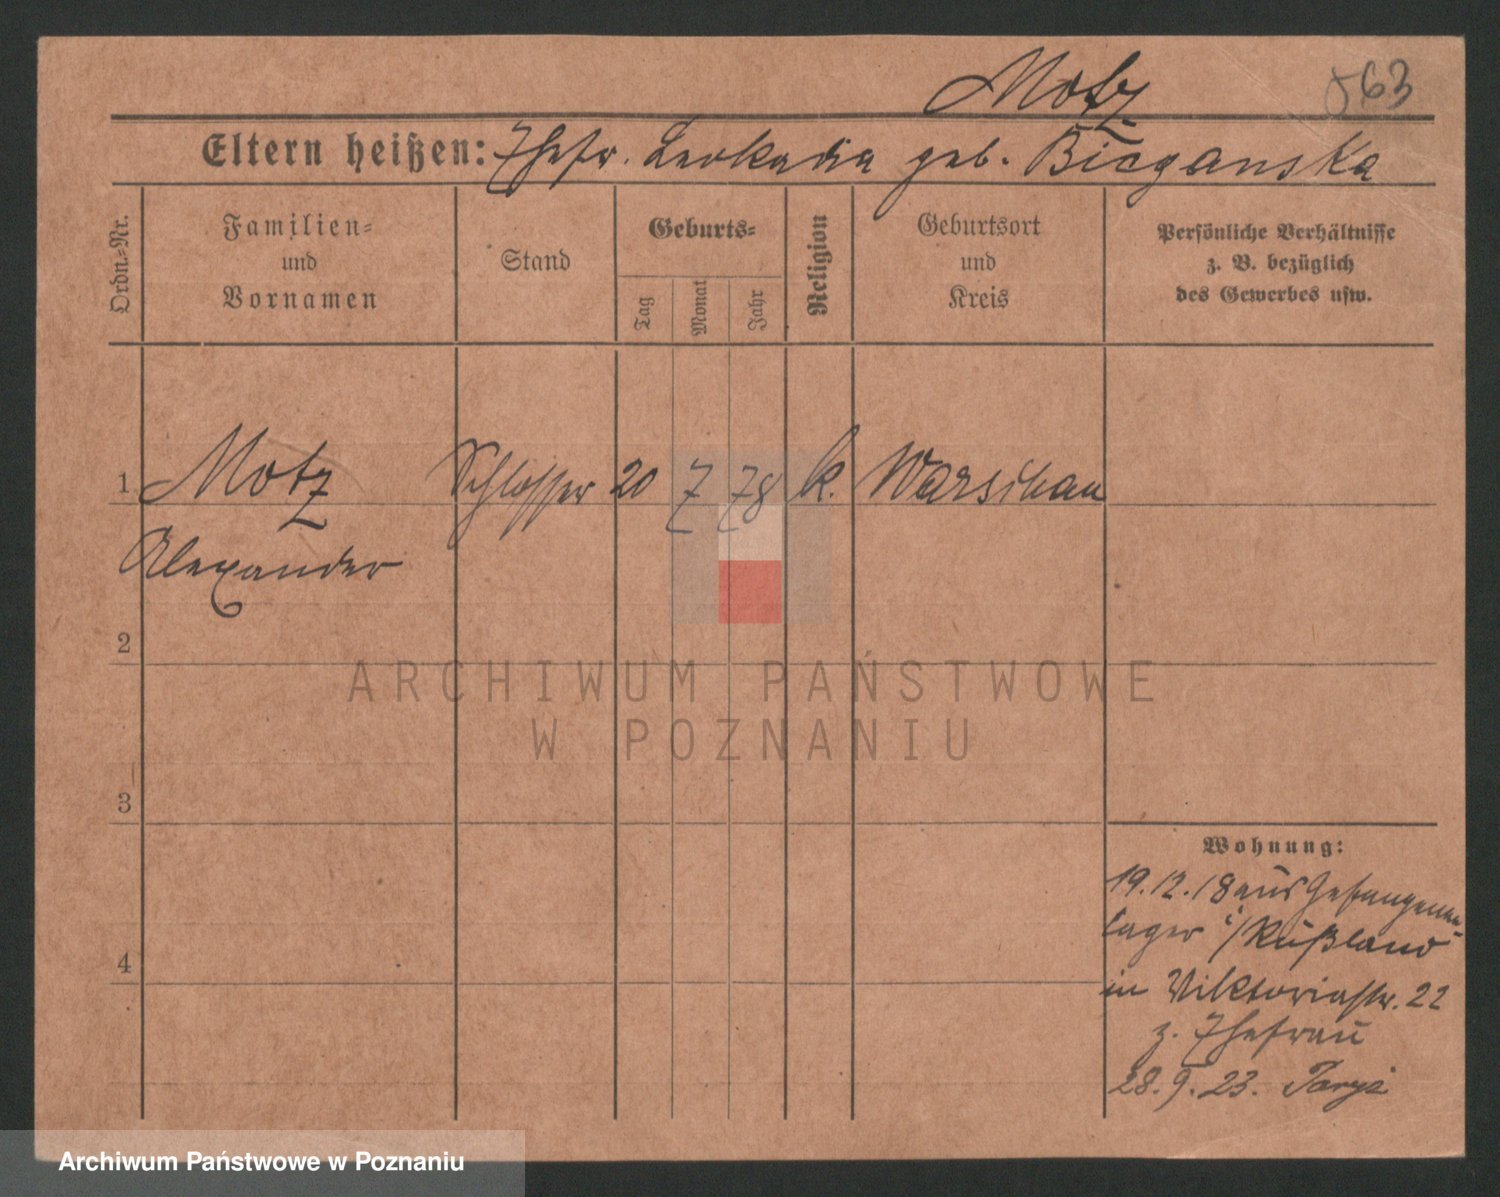 Motz
563
Eltern heißen: Ehefr. Leokadia geb. Bieganska
Ordn.-Nr.
Familien-
und
Vornamen
Stand
Geburts-
Tag
Monat
Jahr
Religion
Geburtsort
und
Kreis
Persönliche Verhältnisse
z. B. bezüglich
des Gewerbes usw.
1 Motz Schlosser 20 7 78 k. Warschau
Alexander
2
3
4
Wohnung:
19.12.18 aus Gefangenen-
lager i/Rußland
in Viktoriastr. 22
z. Ehefrau
28.9.23.
ARCHIWUM PAŃSTWOWE
W POZNANIU
Archiwum Państwowe w Poznaniu